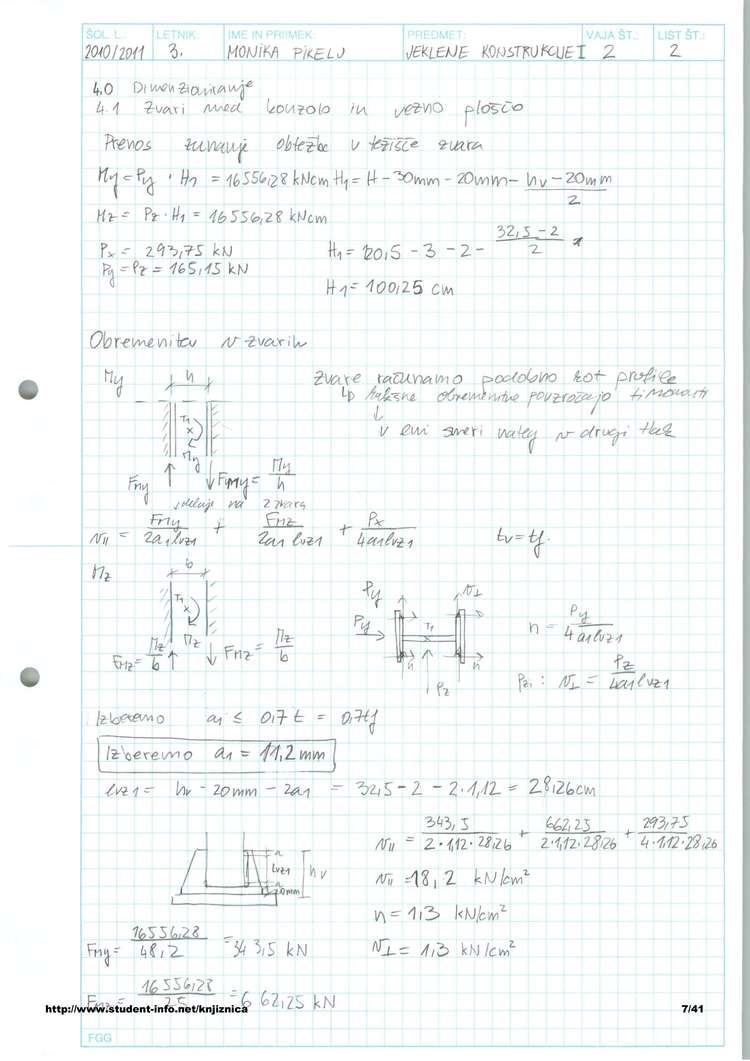 ŠOL. L.: LETNIK: IME IN PRIIMEK: PREDMET: VAJA ŠT.: LIST ŠT.:
2010/2011 3. MONIKA PIKELJ JEKLENE KONSTRUKCIJE I 2 2
4.0 Dimenzioniranje
4.1 Zvari med konzolo in vezno ploščo
Prenos zunanje obtežbe v težišče zvara
My = Py · H1 = 16556,28 kNcm H1 = H - 30mm - 20mm - (hv - 20mm)/2
Mz = Pz · H1 = 16556,28 kNcm
Px = 293,75 kN H1 = 120,5 - 3 - 2 - (32,5 - 2)/2
Py = Pz = 165,15 kN
H1 = 100,25 cm
Obremenitev v zvarih
My h Zvare računamo podobno kot profile
↳ obremenitve povzročajo
↓
v eni smeri nateg v drugi tlak
T1
My
FMy FMy = My/h
deluje na 2 zvara
V|| = FMy/2a1lvz1 + FMz/2a1lvz1 + Px/4a1lvz1 tv = tf
Mz b
Py V⊥
T1 Py T1 n = Py/4a1lvz1
Mz
FMz = Mz/b FMz = Mz/b n n
Pz Pz: V⊥ = Pz/4a1lvz1
Izberemo a1 ≤ 0,7t = 0,7tf
Izberemo a1 = 11,2 mm
lvz1 = hv - 20mm - 2a1 = 32,5 - 2 - 2·1,12 = 28,26cm
V|| = 343,5/2·1,12·28,26 + 662,25/2·1,12·28,26 + 293,75/4·1,12·28,26
a
lvz1 hv
a
20mm
V|| = 18,2 kN/cm²
n = 1,3 kN/cm²
FMy = 16556,28/48,2 = 343,5 kN V⊥ = 1,3 kN/cm²
FMz = 16556,28/25 = 662,25 kN
http://www.student-info.net/knjiznica 7/41
FGG